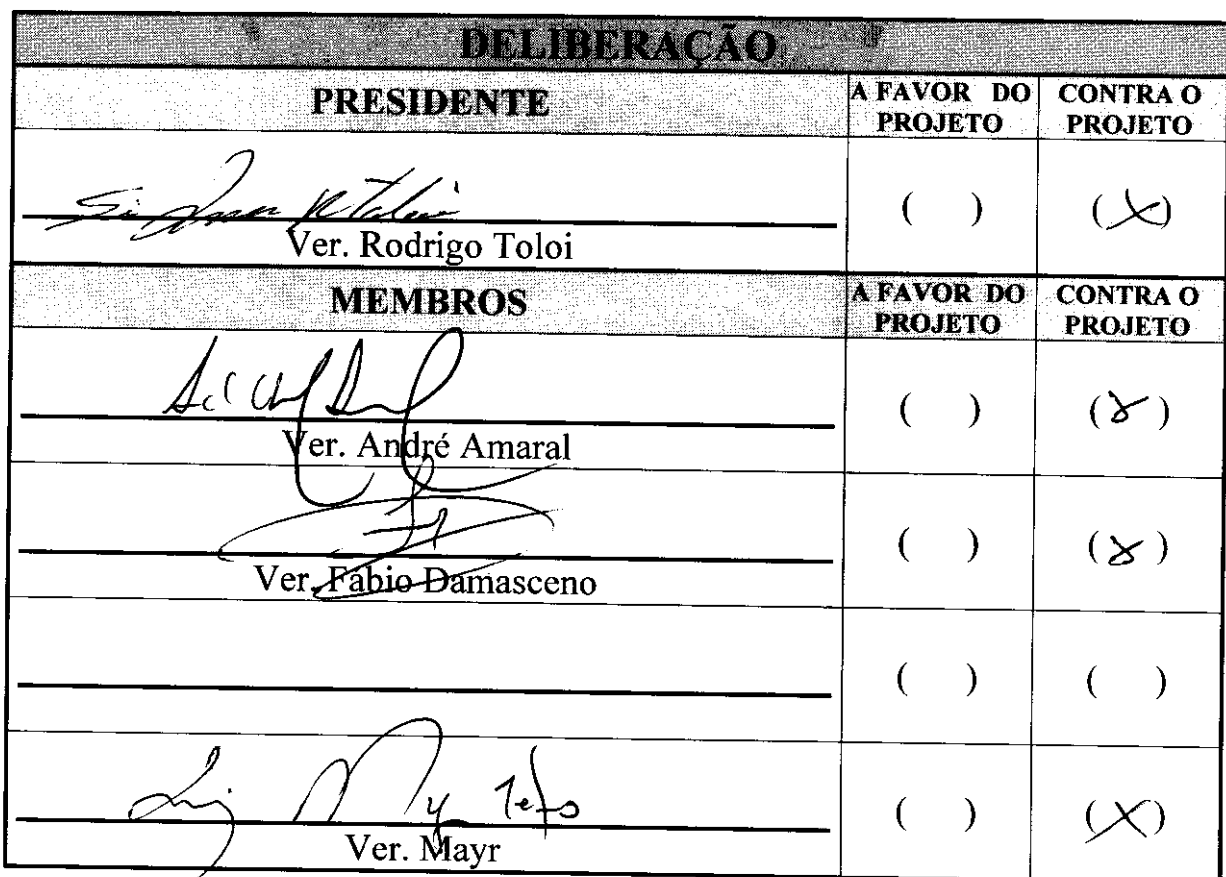 DELIBERAÇÃO
PRESIDENTE
A FAVOR DO
PROJETO
CONTRA O
PROJETO
( )
(X)
Ver. Rodrigo Toloi
MEMBROS
A FAVOR DO
PROJETO
CONTRA O
PROJETO
( )
(X)
Ver. André Amaral
( )
(X)
Ver. Fábio Damasceno
( )
( )
( )
(X)
Ver. Mayr